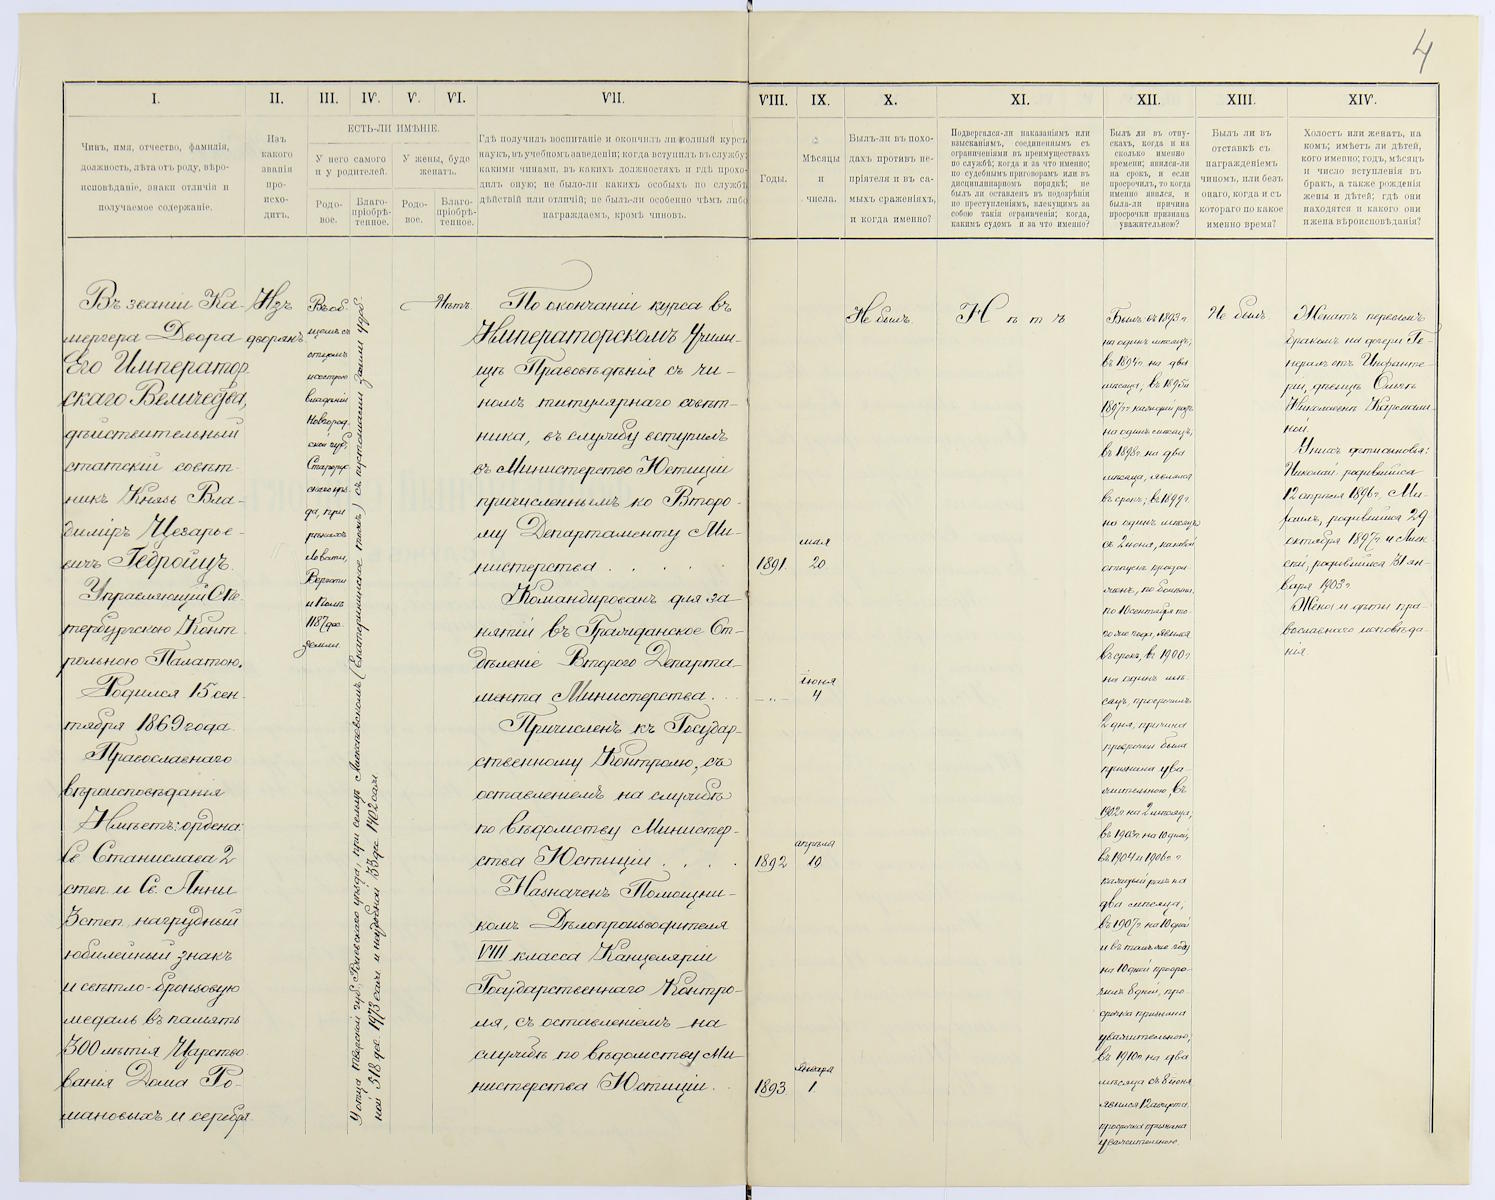 4
I.
II.
III.
IV.
V.
VI.
VII.
VIII.
IX.
X.
XI.
XII.
XIII.
XIV.
Чинъ, имя, отчество, фамилія,
должность, лѣта отъ роду, вѣро-
исповѣданіе, знаки отличія и
получаемое содержаніе.
Изъ
какого
званія
про-
исхо-
дитъ.
ЕСТЬ-ЛИ ИМѢНІЕ.
У него самого
и у родителей.
У жены, буде
женатъ.
Родо-
вое.
Благо-
пріобрѣ-
тенное.
Родо-
вое.
Благо-
пріобрѣ-
тенное.
Гдѣ получилъ воспитаніе и окончилъ ли полный курсъ
наукъ, въ учебномъ заведеніи; когда вступилъ въ службу;
какими чинами, въ какихъ должностяхъ и гдѣ прохо-
дилъ оную; не было-ли какихъ особыхъ по службѣ
дѣйствій или отличій; не былъ-ли особенно чѣмъ либо
награждаемъ, кромѣ чиновъ.
Годы.
Мѣсяцы
и
числа.
Былъ-ли въ похо-
дахъ противъ не-
пріятеля и въ са-
мыхъ сраженіяхъ,
и когда именно?
Подвергался-ли наказаніямъ или
взысканіямъ, соединеннымъ съ
ограниченіями въ преимуществахъ
по службѣ; когда и за что именно;
по судебнымъ приговорамъ или въ
дисциплинарномъ порядкѣ; не
былъ ли оставленъ въ подозрѣніи
по преступленіямъ, влекущимъ за
собою такія ограниченія; когда,
какимъ судомъ и за что именно?
Былъ ли въ отпу-
скахъ, когда и на
сколько именно
времени; явился-ли
на срокъ, и если
просрочилъ, то когда
именно явился, и
была-ли причина
просрочки признана
уважительною?
Былъ ли въ
отставкѣ съ
награжденіемъ
чиномъ, или безъ
онаго, когда и съ
котораго по какое
именно время?
Холостъ или женатъ, на
комъ; имѣетъ ли дѣтей,
кого именно; годъ, мѣсяцъ
и число вступленія въ
бракъ, а также рожденія
жены и дѣтей; гдѣ они
находятся и какого они
и жена вѣроисповѣданія?
Въ званіи Ка-
мергера Двора
Его Император
скаго Величества,
дѣйствительный
статскій совѣт-
никъ Князь Вла-
димiръ Цезарье-
вичъ Гедройцъ.
Управляющій С.Пе-
тербургскою Конт
рольною Палатою.
Родился 15 сен-
тября 1869 года.
Православнаго
вѣроисповѣданія
Имѣетъ: ордена:
Св. Станислава 2
степ. и Св. Анны
3 степ., нагрудный
юбилейный знакъ
и свѣтло-бронзовую
медаль въ память
300 лѣтія Царство
ванія Дома Ро-
мановыхъ и серебря
Изъ
дворянъ
Въ об-
щемъ съ
отцомъ
и сестрою
владѣніи
Новгород
ской губ.,
Старорус
скаго уѣз-
да, при
рѣкахъ
Ловати,
и Полѣ
1187 дес.
земли.
У отца Тверской губ., Ржевскаго уѣзда, при сельцѣ (Екатерининское тожъ) съ пустошами земли удоб
ной 518 дес. 1973 саж. и неудобной 33 дес. 1402 саж.
Нѣтъ
По окончаніи курса въ
Императорскомъ Учили-
щѣ Правовѣдѣнія съ чи-
номъ титулярнаго совѣт-
ника, въ службу вступилъ
въ Министерство Юстиціи
причисленнымъ ко Второ-
му Департаменту Ми-
нистерства . . . . .
1891.
мая
20
Командированъ для за
нятій въ Гражданское От-
дѣленіе Второго Департа-
мента Министерства . .
— „ —
іюня
4
Причисленъ къ Государ-
ственному Контролю, съ
оставленіемъ на службѣ
по вѣдомству Министер-
ства Юстиціи . . . .
1892
апрѣля
10
Назначенъ Помощни-
комъ Дѣлопроизводителя
VIII класса Канцеляріи
Государственнаго Контро-
ля, съ оставленіемъ на
службѣ по вѣдомству Ми-
нистерства Юстиціи. .
1893
января
1.
Не былъ
Нѣтъ
Былъ: въ 1893 г.
на одинъ мѣсяцъ;
въ 1894 г. на два
мѣсяца; въ 1895 и
1897 г.г. каждый разъ
на одинъ мѣсяцъ;
въ 1898 г. на два
мѣсяца, явился
въ срокъ; въ 1899 г.
на одинъ мѣсяцъ
съ 2 іюня, каковой
отпускъ продол-
женъ, по болѣзни,
по 10 сентября то-
го же года, явился
въ срокъ; въ 1900 г.
на одинъ мѣ-
сяцъ, просрочилъ
2 дня, причина
просрочки была
признана ува-
жительною; въ
1902 г. на 2 мѣсяца;
въ 1903 г. на 10 дней;
въ 1904 и 1906 г.г.
каждый разъ на
два мѣсяца;
въ 1907 г. на 10 дней
и въ томъ же году
на 10 дней просро-
чилъ 8 дней, про-
срочка признана
уважительною;
въ 1910 г. на два
мѣсяца съ 8 іюня
явился 12 августа
просрочка признана
уважительною.
Не былъ
Женатъ первымъ
бракомъ на дочери Ге-
нерала отъ Инфанте-
ріи, дѣвицѣ Ольгѣ
Николаевнѣ
ной.
У нихъ дѣти сыновья:
Николай, родившійся
12 апрѣля 1896 г., Ми-
хаилъ, родившійся 29
октября 1897 г. и Алек
сѣй, родившійся 31 ян-
варя 1903 г.
Жена и дѣти пра-
вославнаго исповѣда-
нія.